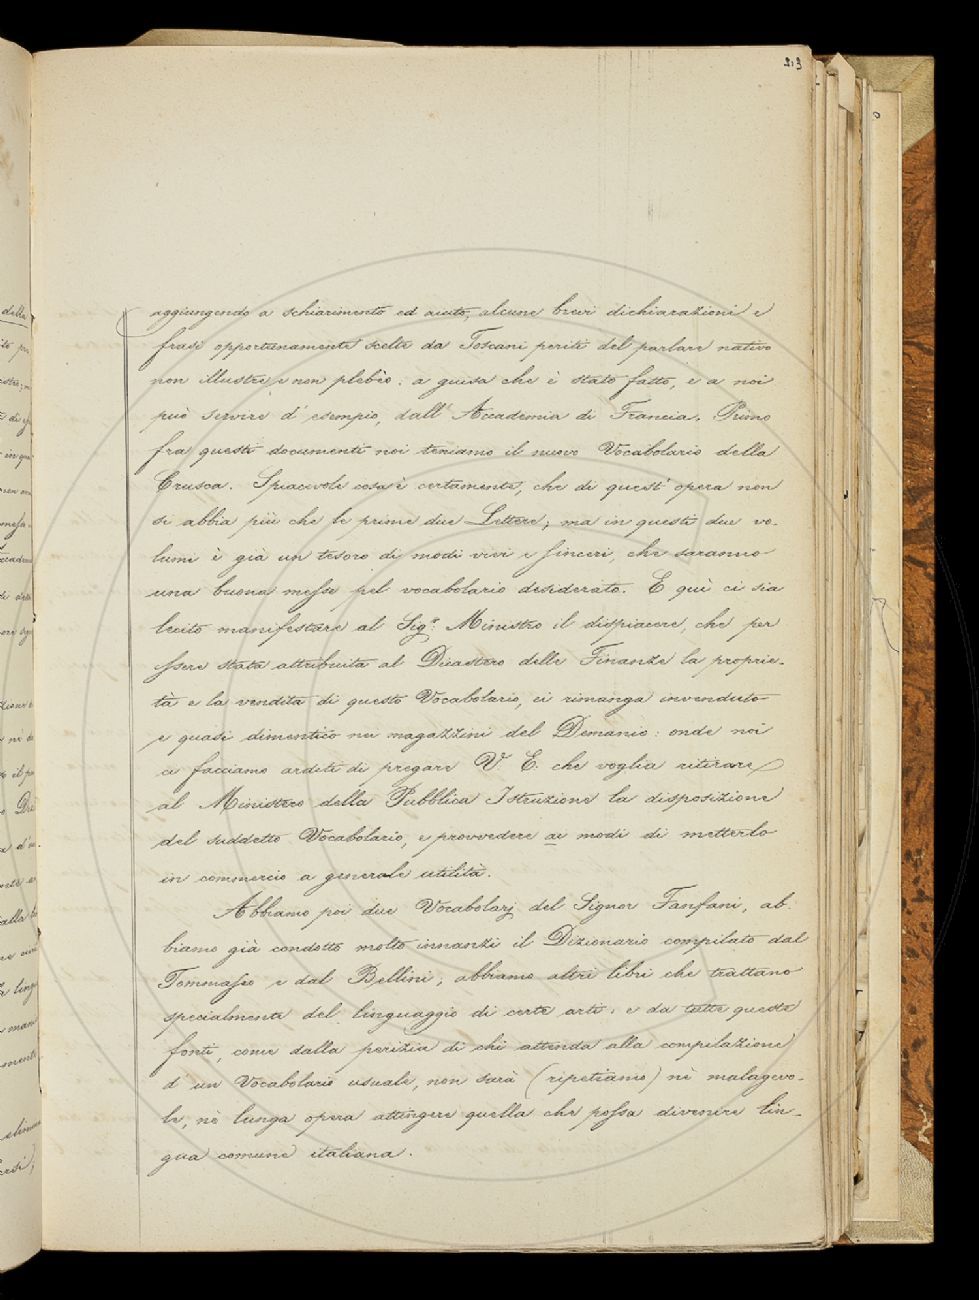 213
aggiungendo a schiarimento ed aiuto, alcune brevi dichiarazioni e
frasi opportunamente scelte da Toscani periti del parlare nativo
non illustre e non plebèo: a guisa che è stato fatto, e a noi
può servire d'esempio, dall'Accademia di Francia. Primo
fra questi documenti noi teniamo il nuovo Vocabolario della
Crusca. Spiacevole cosa è certamente, che di quest'opera non
si abbia più che le prime due Lettere; ma in questi due vo-
lumi è già un tesoro di modi vivi e sinceri, che saranno
una buona messe pel vocabolario desiderato. E quì ci sia
lecito manifestare al Sig.r Ministro il dispiacere, che per
essere stata attribuita al Dicastero delle Finanze la proprie-
tà e la vendita di questo Vocabolario, ci rimanga invenduto
e quasi dimentico nei magazzini del Demanio: onde noi
ci facciamo arditi di pregare V. E. che voglia ritirare
al Ministero della Pubblica Istruzione la disposizione
del suddetto Vocabolario, e provvedere ai modi di metterlo
in commercio a generale utilità.
Abbiamo poi due Vocabolarj del Signor Fanfani, ab-
biamo già condotto molto innanzi il Dizionario compilato dal
Tommaseo e dal Bellini; abbiamo altri libri che trattano
specialmente del linguaggio di certe arti: e da tutte queste
fonti, come dalla perizia di chi attenda alla compilazione
d'un Vocabolario usuale, non sarà (ripetiamo) nè malagevo-
le, nè lunga opera attingere quella che possa divenire lin-
gua comune italiana.